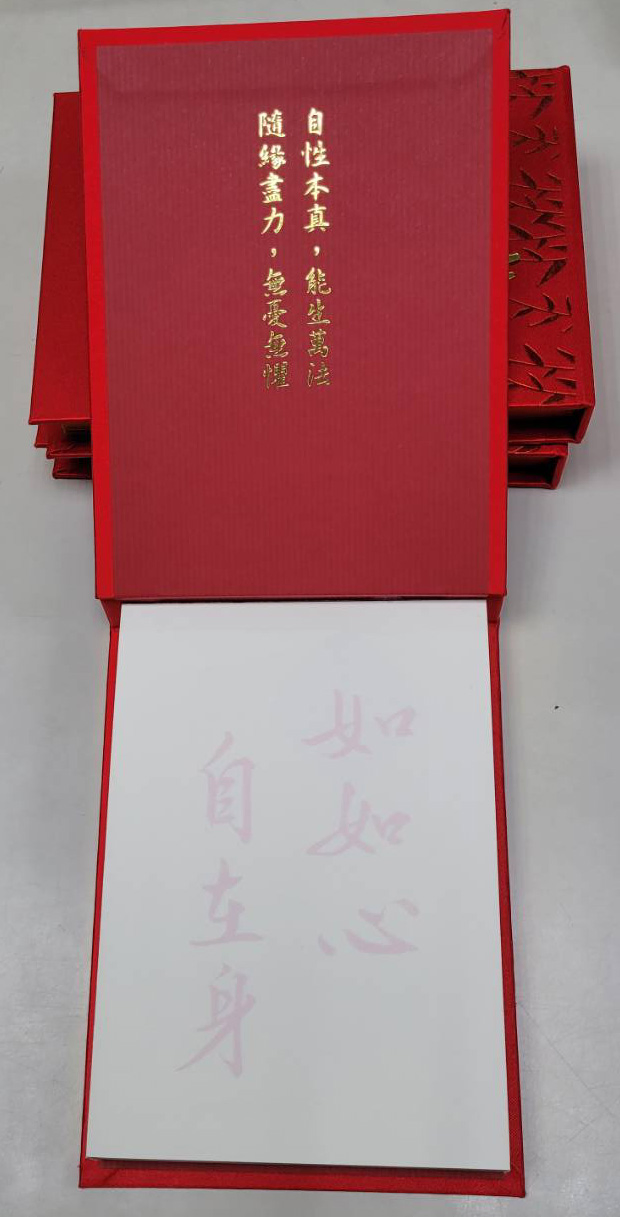 自性本真，能生萬法
隨緣盡力，無憂無懼
如如心
自在身